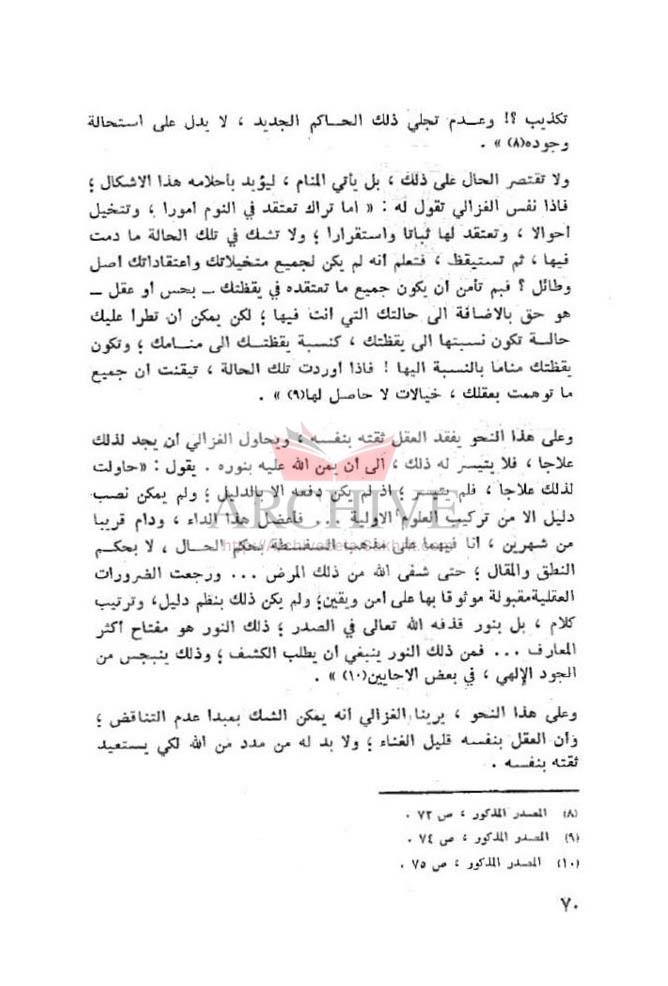 تكذيب ؟! وعـدم تجلي ذلك الحـاكم الجديد ، لا يدل على استحالة
وجوده(٨) » .
ولا تقتصر الحال على ذلك ، بل يأتي المنام ، ليؤيد بأحلامه هذا الاشكال ؛
فاذا نفس الغزالي تقول له : « اما تراك تعتقد في النوم امورا ، وتتخيل
احوالا ، وتعتقد لها ثباتا واستقرارا ؛ ولا تشك في تلك الحالة ما دمت
فيها ، ثم تستيقظ ، فتعلم انه لم يكن لجميع متخيلاتك واعتقاداتك اصل
وطائل ؟ فبم تأمن ان يكون جميع ما تعتقده في يقظتك ــ بحس او عقل ــ
هو حق بالاضافة الى حالتك التي انت فيها ؛ لكن يمكن ان تطرأ عليك
حالـة تكون نسبتها الى يقظتك ، كنسبة يقظتـك الى منـامك ؛ وتكون
يقظتك مناما بالنسبة اليها ! فاذا اوردت تلك الحالة ، تيقنت ان جميع
ما توهمت بعقلك ، خيالات لا حاصل لها(٩) » .
وعلى هذا النحو يفقد العقل ثقته بنفسه ، ويحاول الغزالي ان يجد لذلك
علاجا ، فلا يتيسر له ذلك ، الى ان يمن الله عليه بنوره . يقول : «حاولت
لذلك علاجا ، فلم يتيسر ؛ اذ لم يكن دفعه الا بالدليل ؛ ولم يمكن نصب
دليل الا من تركيب العلوم الاولية ... فأعضل هذا الداء ، ودام قريبا
من شهرين ، انا فيهما على مذهب السفسطة بحكم الحـال ، لا بحكـم
النطق والمقال ؛ حتى شفى الله من ذلك المرض ... ورجعت الضرورات
العقلية مقبولة موثوقا بها على امن ويقين؛ ولم يكن ذلك بنظم دليل، وترتيب
كلام ، بل بنور قذفه الله تعالى في الصدر ؛ ذلك النور هو مفتاح أكثر
المعارف ... فمن ذلك النور ينبغي ان يطلب الكشف ؛ وذلك ينبجس من
الجود الإلهي ، في بعض الاحايين(١٠) » .
وعلى هذا النحو ، يرينا الغزالي انه يمكن الشك بمبدا عدم التناقض ؛
وان العقل بنفسه قليل الغناء ؛ ولا بد له من مدد من الله لكي يستعيد
ثقته بنفسه .
(٨) المصدر المذكور ، ص ٧٢ .
(٩) المصدر المذكور ، ص ٧٤ .
(١٠) المصدر المذكور ، ص ٧٥ .
٧٠
ARCHIVE
http://Archivebeta.Sakhrit.com